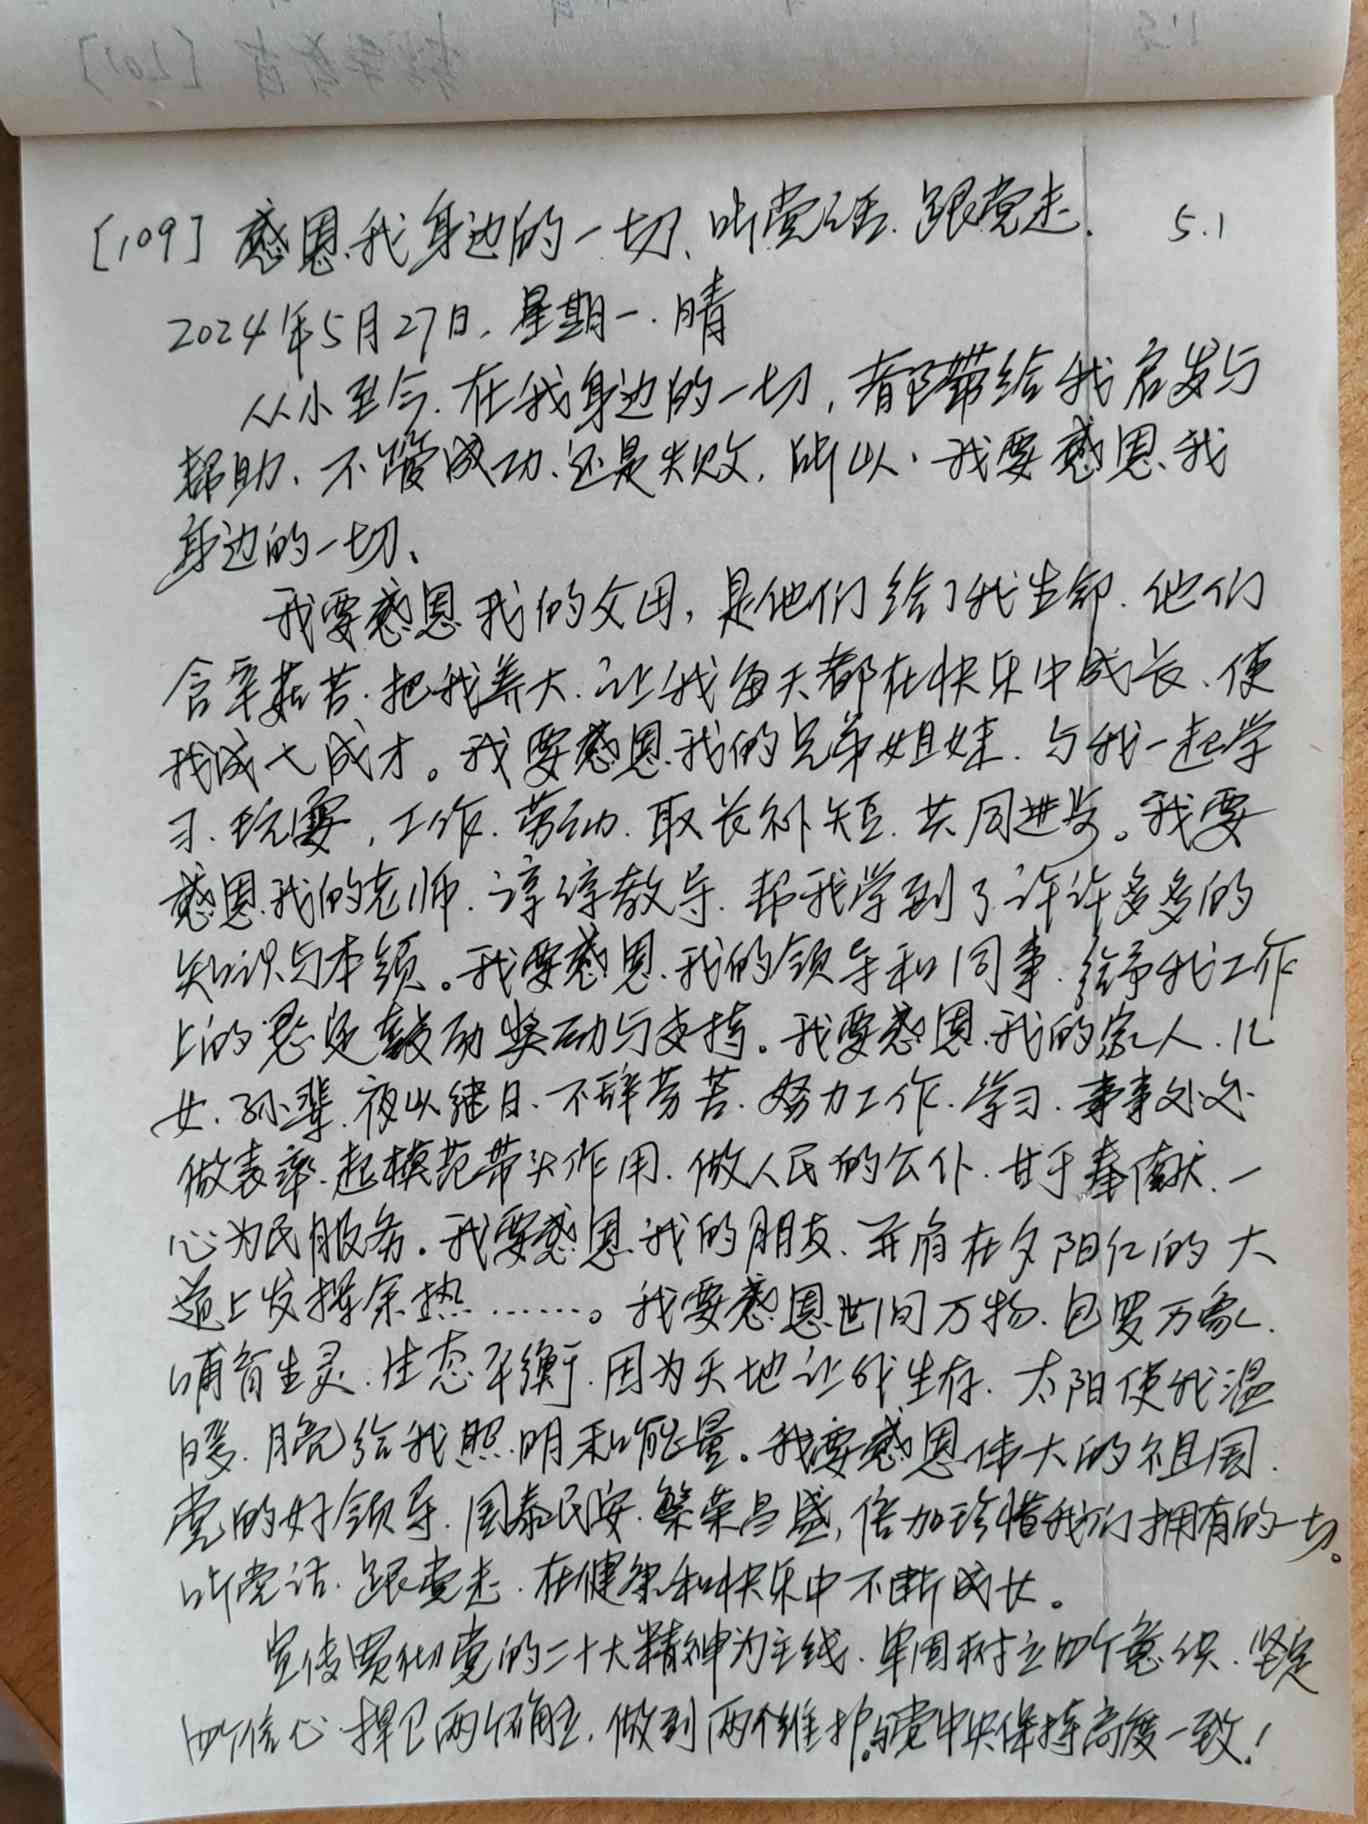 [109] 感恩我身边的一切、听党话、跟党走. 5.1
2024年5月27日, 星期一. 晴
从小至今. 在我身边的一切, 都带给我启发与
帮助、不管成功、还是失败, 所以. 我要感恩我
身边的一切、
我要感恩我的父母, 是他们给了我生命. 他们
含辛茹苦. 把我养大. 让我每天都在快乐中成长、使
我成长成才。我要感恩我的兄弟姐妹. 与我一起学
习、玩耍, 工作. 劳动. 取长补短. 共同进步。我要
感恩我的老师. 谆谆教导. 帮我学到了许许多多的
知识与本领。我要感恩我的领导和同事. 给予我工作
上的肯定鼓励奖励与支持。我要感恩我的家人. 儿
女. 孙辈. 夜以继日、不辞劳苦. 努力工作. 学习. 事事处处
做表率. 起模范带头作用. 做人民的公仆. 甘于奉献. 一
心为民服务。我要感恩我的朋友、并肩在夕阳红的大
道上发挥余热……。我要感恩世间万物. 包罗万象.
哺育生灵. 生态平衡. 因为天地让我生存. 太阳使我温
暖. 月亮给我照明和能量。我要感恩伟大的祖国.
党的好领导. 国泰民安. 繁荣昌盛, 倍加珍惜我们拥有的一切。
听党话. 跟党走. 在健康和快乐中不断成长。
宣传贯彻党的二十大精神为主线. 牢固树立四个意识. 坚定
四个信心 捍卫两个确立. 做到两个维护。与党中央保持高度一致!